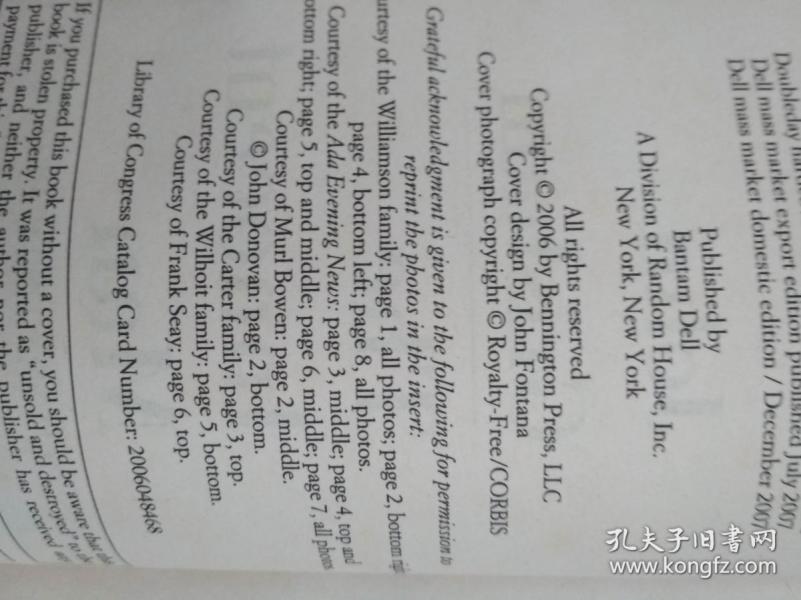 Doubleday
Dell mass market export edition published July 2007
Dell mass market domestic edition / December 2007
Published by
Bantam Dell
A Division of Random House, Inc.
New York, New York
All rights reserved
Copyright © 2006 by Bennington Press, LLC
Cover design by John Fontana
Cover photograph copyright © Royalty-Free/CORBIS
Grateful acknowledgment is given to the following for permission to
reprint the photos in the insert:
of the Williamson family: page 1, all photos; page 2, bottom
page 4, bottom left; page 8, all photos.
Courtesy of the Ada Evening News: page 3, middle; page 4, top and
right; page 5, top and middle; page 6, middle; page 7, all photos
Courtesy of Murl Bowen: page 2, middle.
© John Donovan: page 2, bottom.
Courtesy of the Carter family: page 3, top.
Courtesy of the Wilhoit family: page 5, bottom.
Courtesy of Frank Seay: page 6, top.
Library of Congress Catalog Card Number: 2006048468
If you purchased this book without a cover, you should be aware that
book is stolen property. It was reported as "unsold and destroyed" to
publisher, and neither the author nor the publisher has received
payment for
孔夫子旧书网
www.kongfz.com